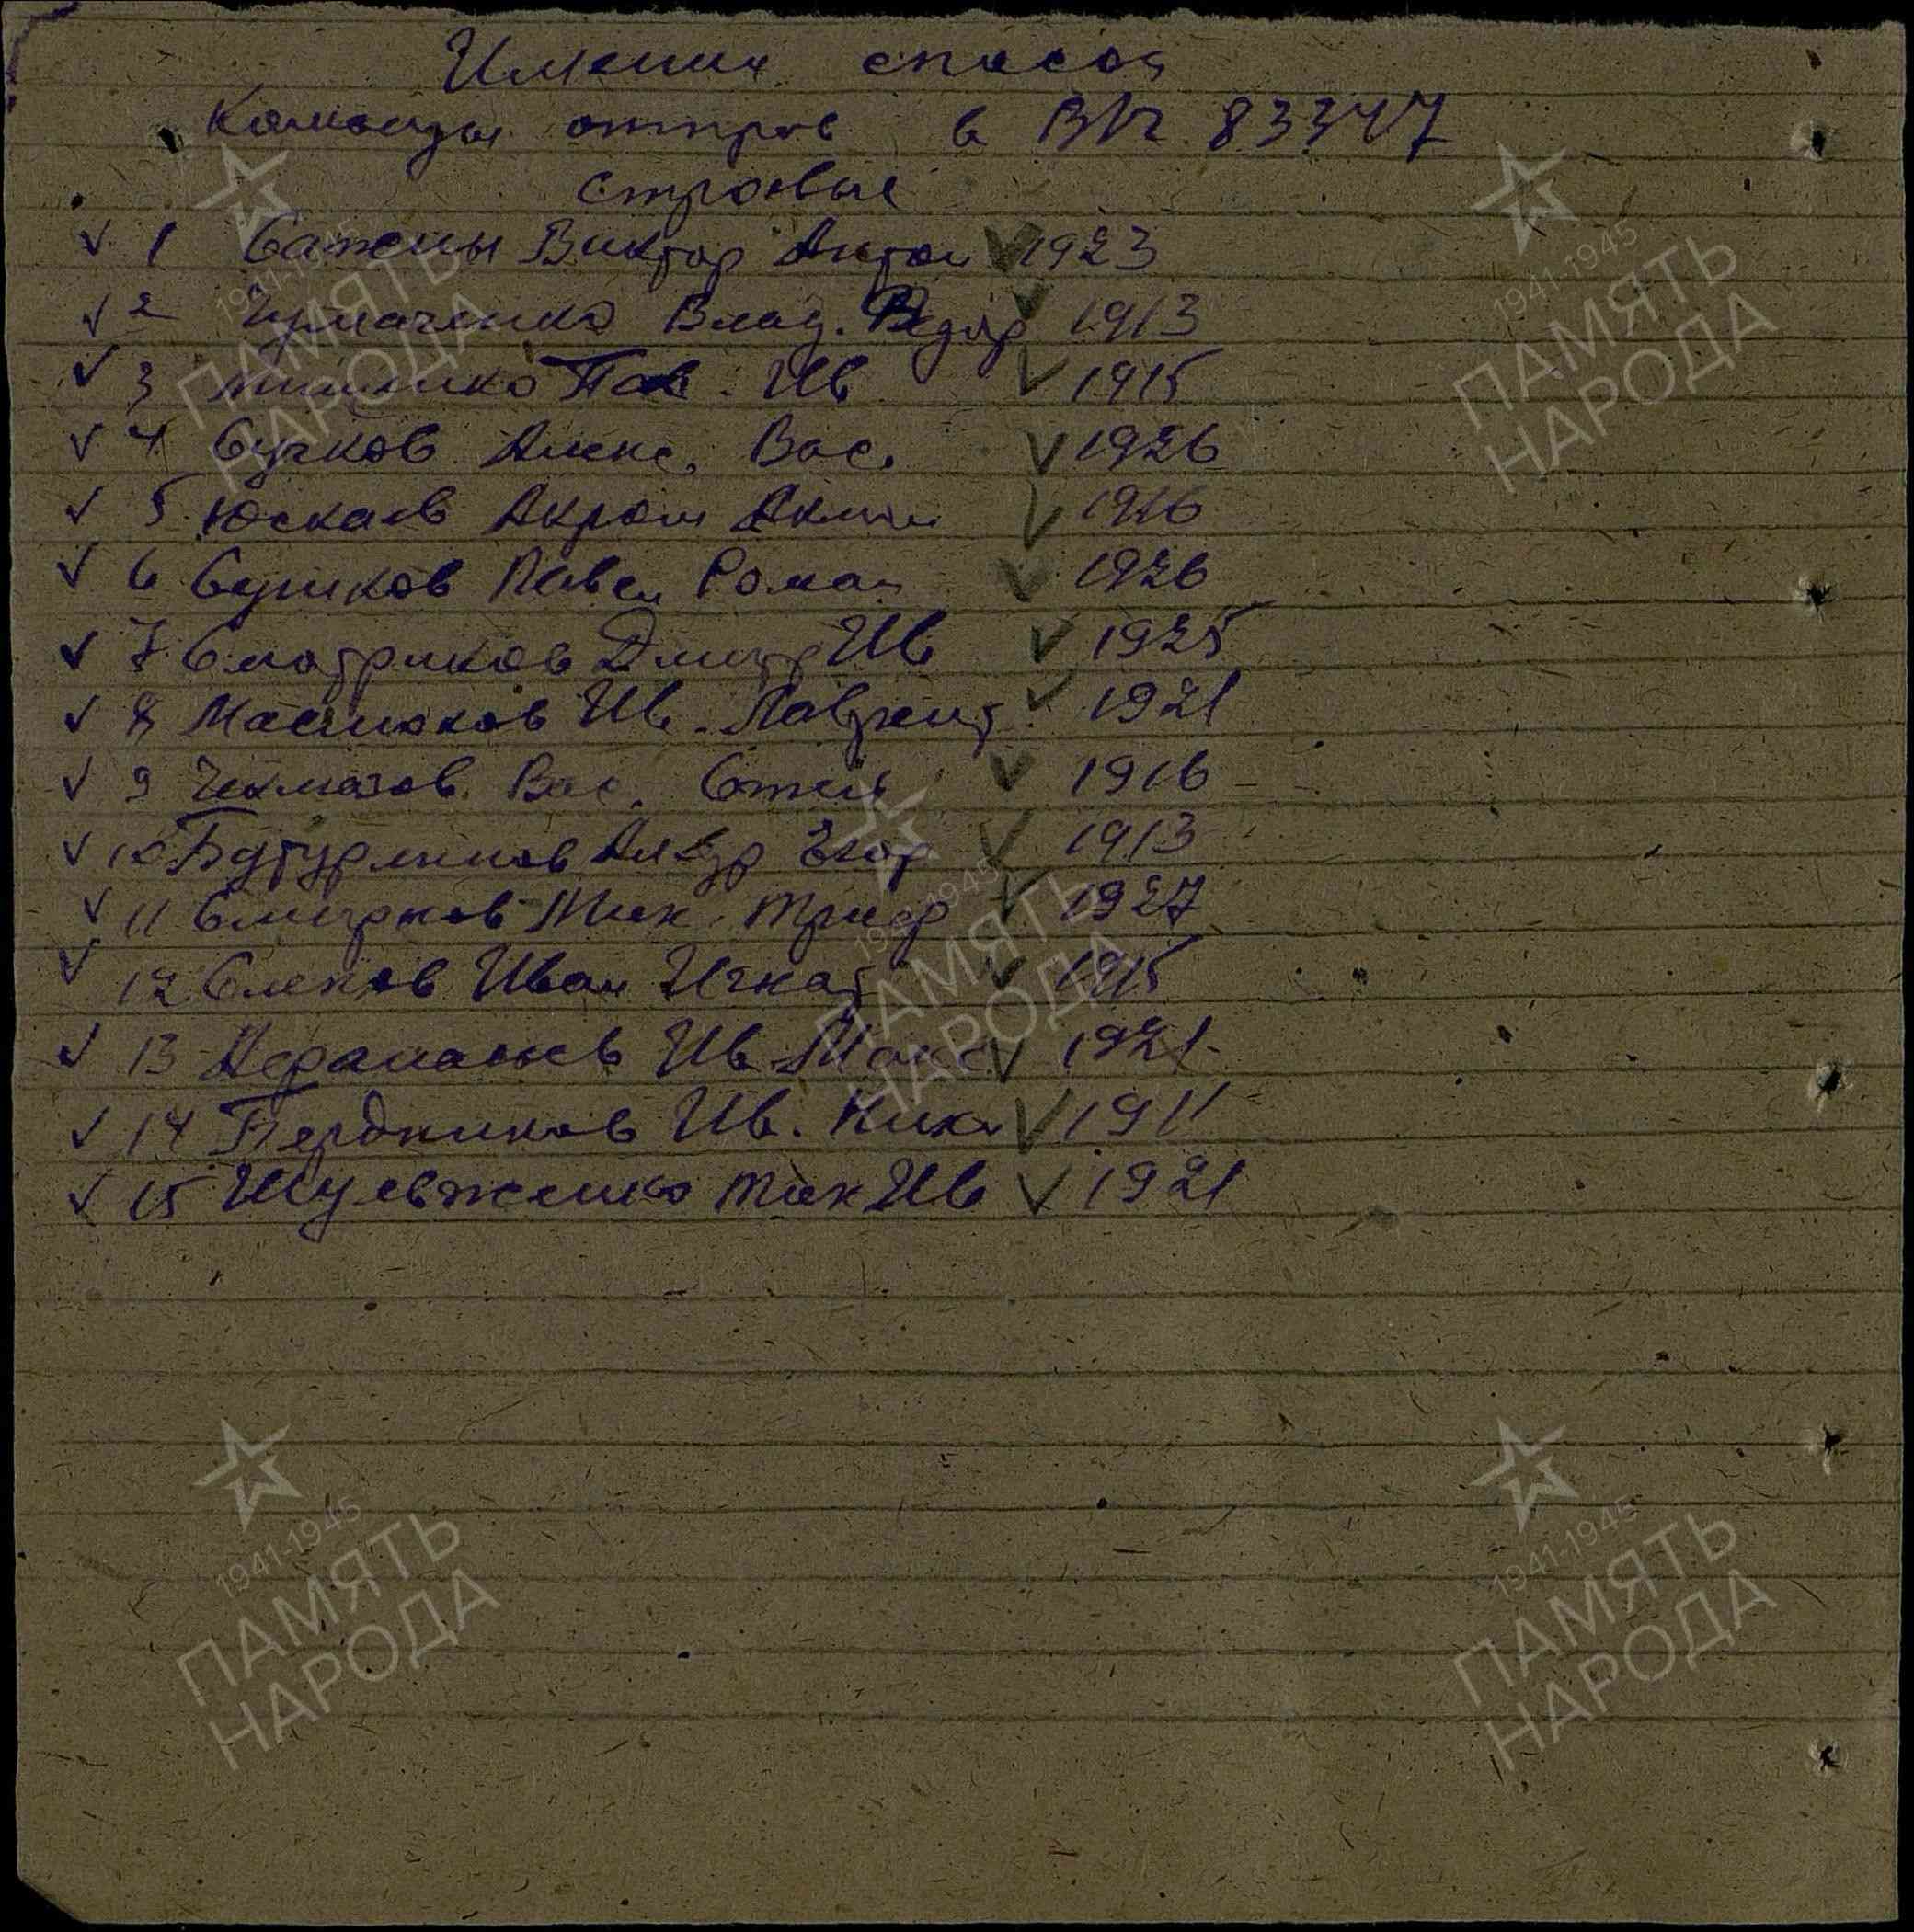 Имении список
Команды отправ в В/ч 83347
строевые
1 Сажены Виктор Антон 1923
2 Чумаченко Влад. Федор 1913
3 Пав. Ив 1915
4 Сучков Алекс. Вас. 1926
5 Юскаев Акрам Аклим 1916
6 Суриков Павел Роман 1926
7 Сматриков Дмитр Ив 1925
8 Маслюков Ив. Лаврент 1921
9 Чекмазов Вас. Степ 1916
10 Бутурлинов Ал-др Егор 1913
11 Смирнов Мих. Триф 1927
12 Слепов Иван Игнат 1915
13 Ив Макс 1921
14 Бердников Ив. Ник 1911
15 Шулевженко Мих Ив 1921
1941-1945
ПАМЯТЬ
НАРОДА
1941-1945
ПАМЯТЬ
НАРОДА
1941-1945
ПАМЯТЬ
НАРОДА
1941-1945
ПАМЯТЬ
НАРОДА
1941-1945
ПАМЯТЬ
НАРОДА